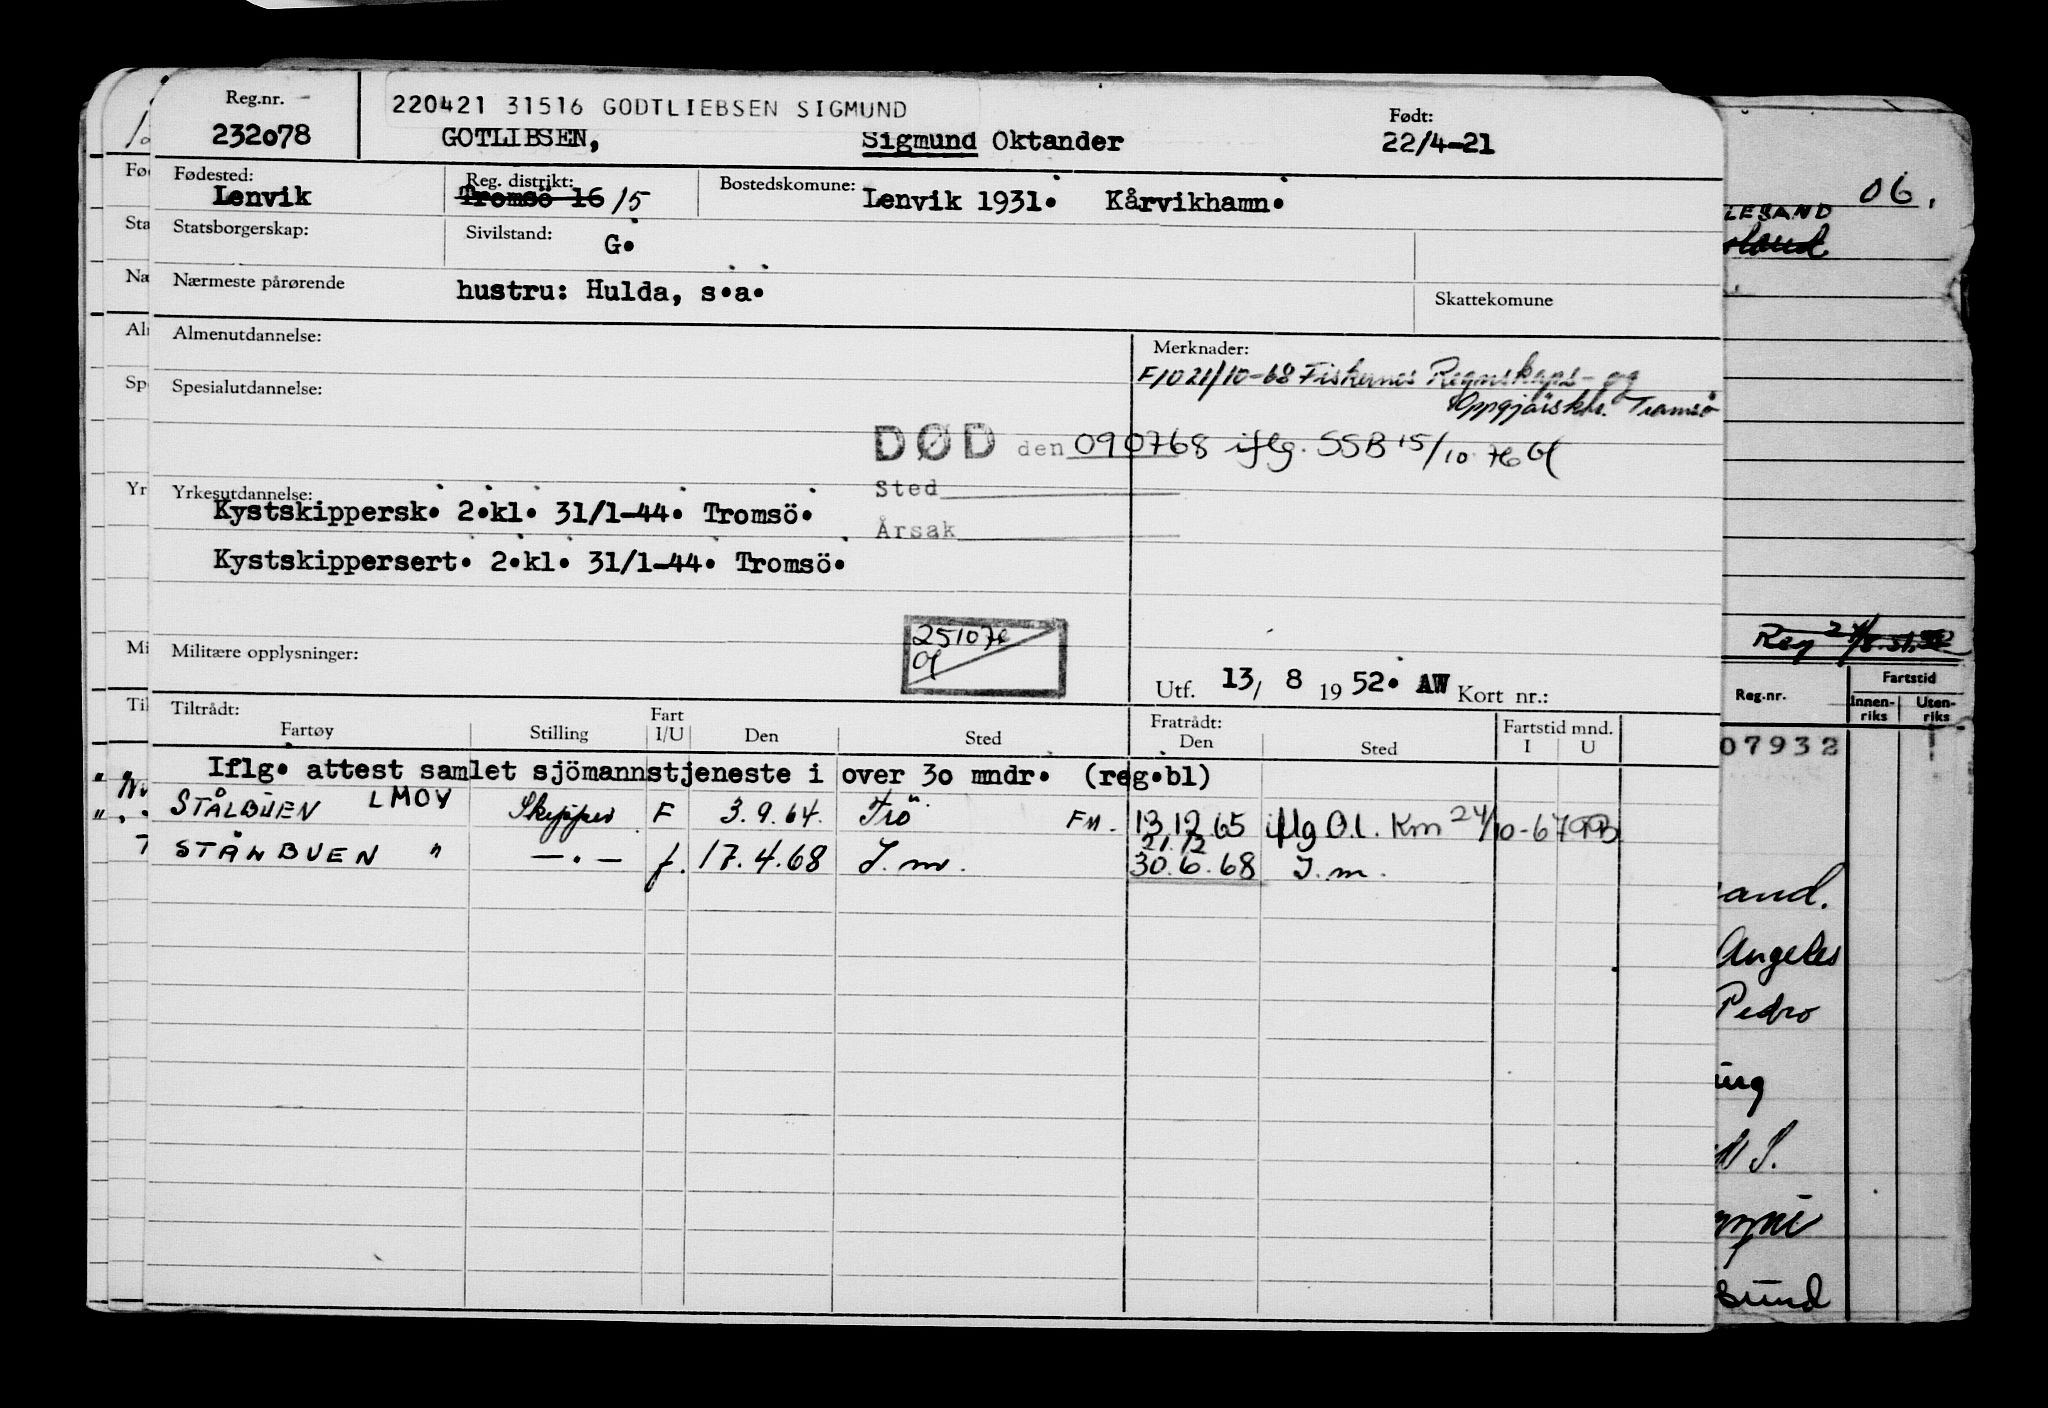 Reg.nr.
232078
220421 31516 GODTLIEBSEN SIGMUND
GOTLIBSEN, Sigmund Oktander
Født:
22/4-21
Fødested:
Lenvik
Reg. distrikt:
Tromsö 16 15
Bostedskomune: Lenvik 1931. Kårvikhamn.
Statsborgerskap:
Sivilstand: G.
Nærmeste pårørende
hustru: Hulda, s.a.
Skattekomune
Almenutdannelse:
Merknader:
F1021/10-68 Fiskernes Regnskaps- og
Oppgjörsktr. Tromsö
Spesialutdannelse:
DØD den 090768 iflg. SSB 15/10 76
Sted
Årsak
Yrkesutdannelse:
Kystskippersk. 2.kl. 31/1-44. Tromsö.
Kystskippersert. 2.kl. 31/1-44. Tromsö.
251076
Militære opplysninger:
Utf. 13/ 8 19 52. AW Kort nr.:
Tiltrådt:
Fartøy Stilling Fart I/U Den Sted
Fratrådt:
Den Sted
Fartstid mnd.
I U
Iflg. attest samlet sjömannstjeneste i over 30 mndr. (reg.bl)
STÅLBUEN LMOV Skipper F 3.9.64. Trö FM. 13.12.65 iflg O.l. Km 24/10-67
21.12
STÅLBUEN " —.— f. 17.4.68 J.m. 30.6.68 J.m.
06.
LESAND
Reg.nr.
Fartstid
Innen-riks Uten-riks
07932
and.
Angeles
Pedro
S.
sund